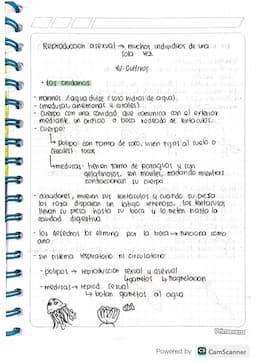 Reproducción asexual → muchos individuos de una
sola vez.
• Los cnidarios
- marinos / agua dulce (solo hidras de agua).
- (medusas, anémonas y corales).
- cuerpo con una cavidad que comunica con el exterior
mediante un orificio o boca rodeado de tentáculos.
- cuerpo:
↳ polipo: con forma de saco, viven fijos al suelo o
rocas
↳ medusas: tienen forma de paraguas y son
gelatinosos, son moviles, nadando mientras
contraccionan su cuerpo
- cazadores, mueven sus tentáculos y cuando su presa
los roza disparan un latigo venenoso, los tentáculos
llevan su presa hasta su boca y lo meten hasta la
cavidad digestiva.
- los desechos se elimina por la boca → funciona como
ano
- sin sistema respiratorio ni circulatorio
- polipos → reproducción sexual y asexual
↳ gametos ↳ fragmentación
- medusas → reprod. sexual
↳ botan gametos al agua
Powered by CS CamScanner